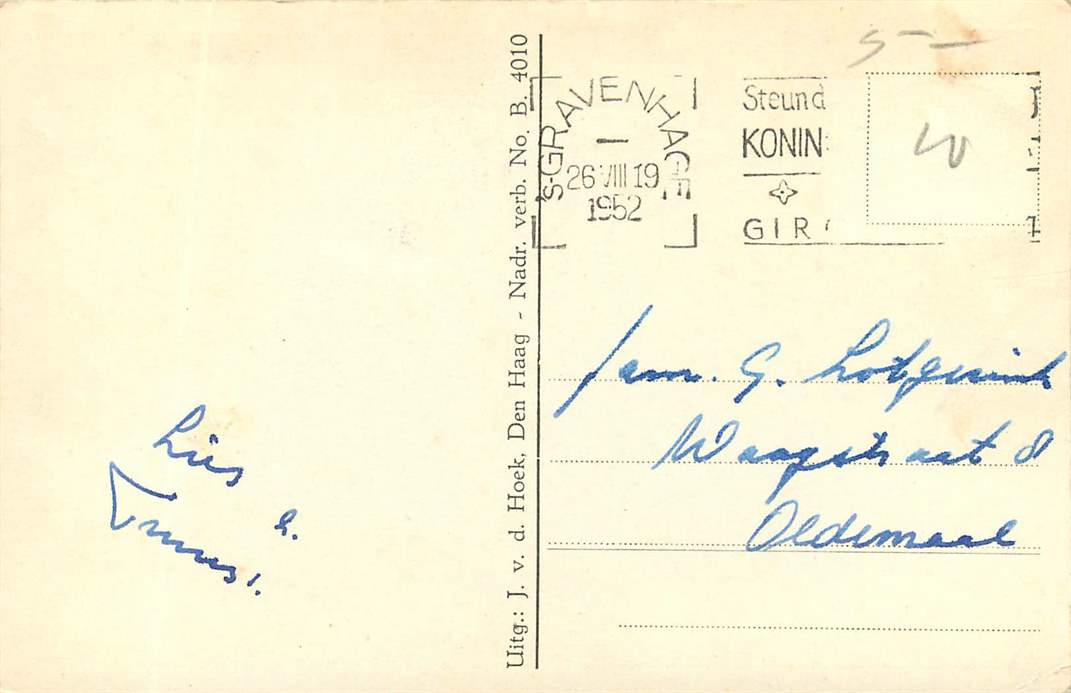 Lies
h.
Uitg.: J. v. d. Hoek, Den Haag - Nadr. verb. No. B. 4010
's-GRAVENHAGE
26 VIII 19
1952
Steund
KONIN
GIR
5-
Fam. G.
Waagstraat 8
Oldemaal